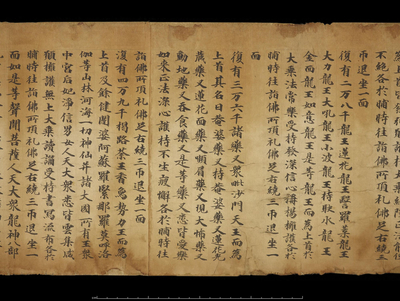 上首皆發弘願護持大乘紹隆正法能使
不絕各於晡時往詣佛所頂礼佛足右繞三
帀退坐一面
復有二万八千龍王蓮花龍王翳羅葉龍王
大力龍王大吼龍王小波龍王持駛水龍王
金面龍王如意龍王是等龍王而為上首於
大乘法常樂受持發深信心稱揚擁護各於
晡時往詣佛所頂礼佛足右繞三帀退坐一
面
復有三万六千諸藥叉衆毗沙門天王而為
上首其名曰菴婆藥叉持菴婆藥叉蓮花光
藏藥叉蓮花面藥叉顰眉藥叉現大怖藥叉
動地藥叉吞食藥叉是等藥叉悉皆愛樂
如來正法深心護持不生疲懈各於晡時往
詣佛所頂礼佛足右繞三帀退坐一面
復有四万九千揭路荼王香象勢力王而為
上首及餘健闥婆阿蘇羅緊那羅莫呼洛
伽等山林河海一切神仙并諸大國所有王衆
中宮后妃淨信男女人天大衆悉皆雲集咸
願擁護無上大乘讀誦受持書寫流布各於
晡時往詣佛所頂礼佛足右繞三帀退坐一
面如是等聲聞菩薩人天大衆龍神八部